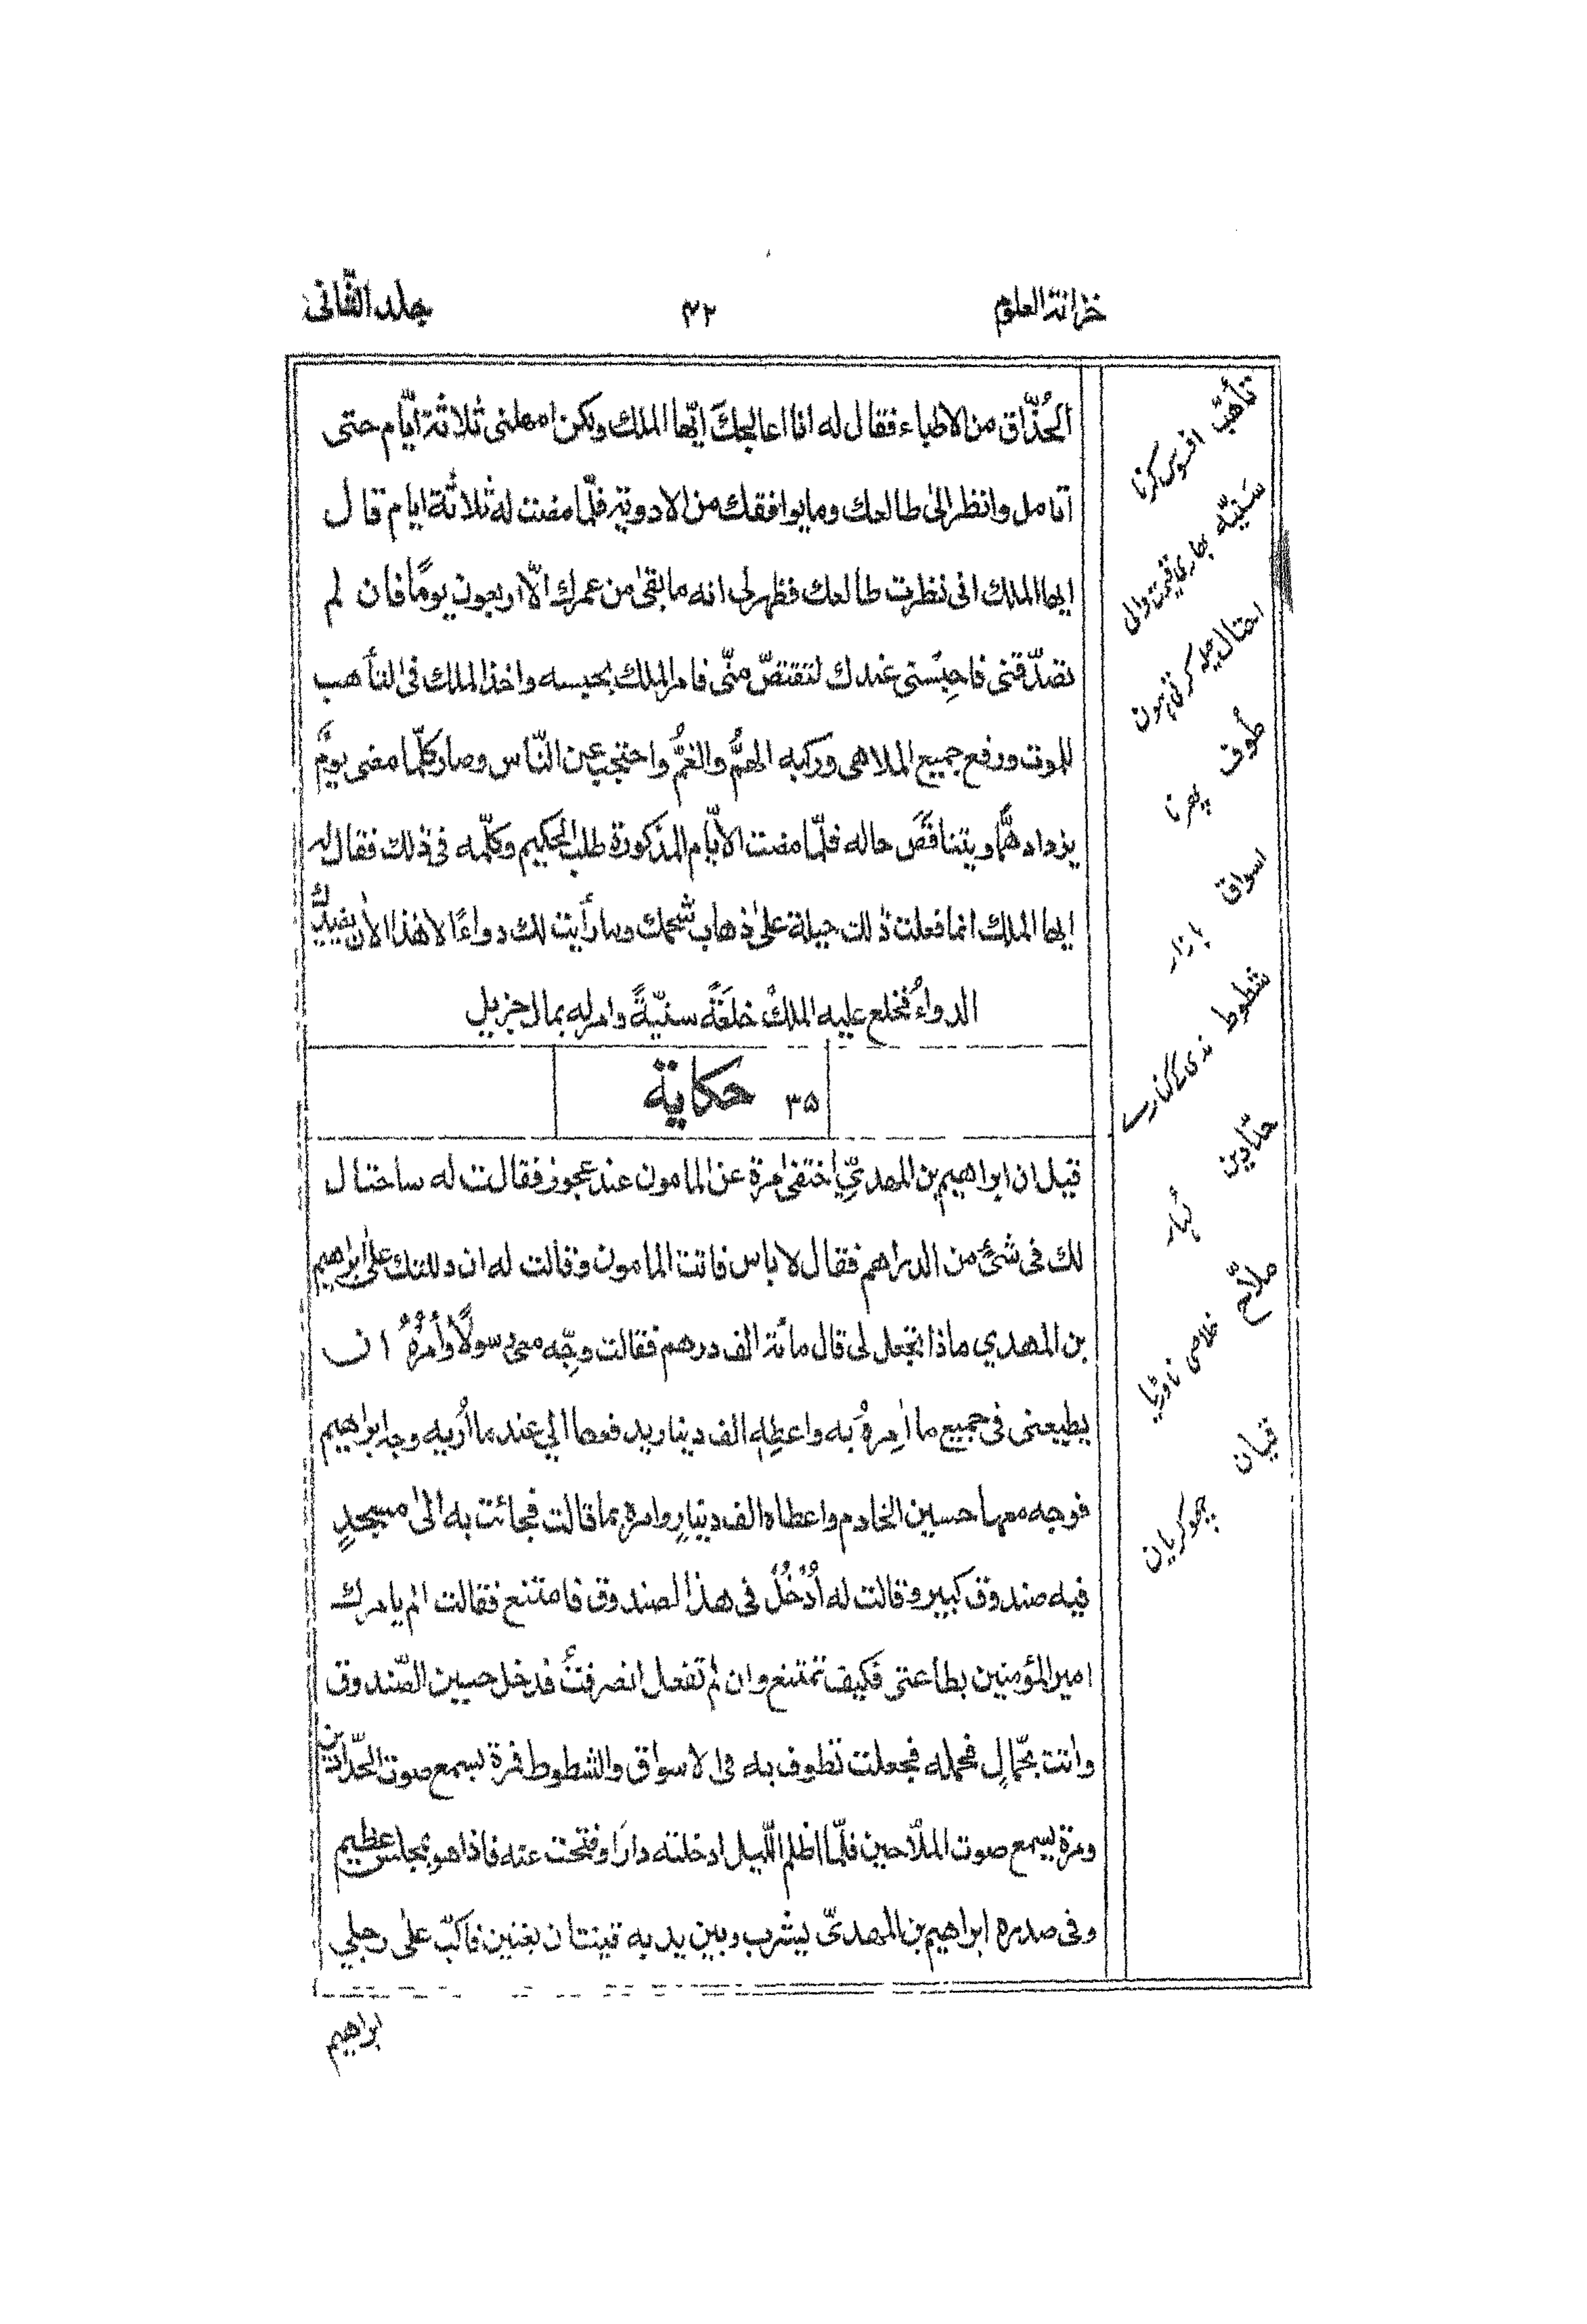 خزانة العلوم ٣٢ جلد الثّانی
الحُذّاق من الاطباء فقال له انا اعالجكَ ايّها الملك ولكن امهلنی ثلاثة ايّام حتی
اتامل وانظر الیٰ طالعك ومايوافقك من الادوية فلمّا مضت له ثلاثة ايام قال
ايها الملك انی نظرت طالعك فظهر لی انه مابقیٰ من عمرك الّا اربعون يومًا فان لم
تصدّقنی فاحبِسنی عندك لتقتصّ منّی فامر الملك بحبسه واخذ الملك فی التأهب
للموت ورفع جميع الملاهی وركبه الهمُّ والغمُّ واحتجب عن النّاس وصار كلّما مضی يومٌ
يزداد همًّا ويتناقَصَ حاله فلمّا مضت الايّام المذكورة طلب الحكيم وكلّمه فی ذلك فقال له
ايها الملك انما فعلت ذٰلك حيلة علیٰ ذهاب شحمك وما رأيت لك دواءًا الا هٰذا الاٰن يفيدك
الدواءُ فخلع عليه الملكُ خلعَةً سنيّةً وامر له بمال جزيل
٣٥ حكاية
قيل ان ابراهيم بن المهدیّ اختفیٰ مرة عن المامون عند عجوز فقالت له ساحتال
لك فی شیٔ من الدراهم فقال لا باس فاتت المامون وقالت له ان دللتك علیٰ ابراهيم
بن المهدي ماذا تجعل لی قال مائة الف درهم فقالت وجّه معی رسولًا وأمُرْهُ ان
يطيعنی فی جميع ما اٰمرهُ به واعطِه الف دينار يدفعها الیّ عند ما اُريه وجه ابراهيم
فوجه معها حسين الخادم واعطاه الف دينارٍ وامره بما قالت فجائت به الیٰ مسجدٍ
فيه صندوق كبير وقالت له اُدْخُلْ فی هذا الصندوق فامتنع فقالت الم يامرك
امير المؤمنين بطاعتی فكيف تمتنع وان لم تفعل انصرفتُ فدخل حسين الصّندوق
واتت بحّمالٍ فحمله فجعلت تطوف به فی الاسواق والشطوط فمرة يسمع صوت الحدّادين
ومرة يسمع صوت الملّاحين فلمّا اظلم اللّيل ادخلته دارًا وفتحت عنه فاذا هو بمجلس عظيم
وفی صدره ابراهيم بن المهدیّ يشرب وبين يديه قينتان يغنين فاكبّ علیٰ رجلي
تأهّب افسوس کرنا
سَنيّه بھاری قیمت والی
احتال حیلہ کرتی ہون
طُوف پھرنا
اسواق بازار
شطوط ندی کے کنارے
حدّادین لُہار
ملاّح خلاصی
قیان چھوکریان
ابراهيم